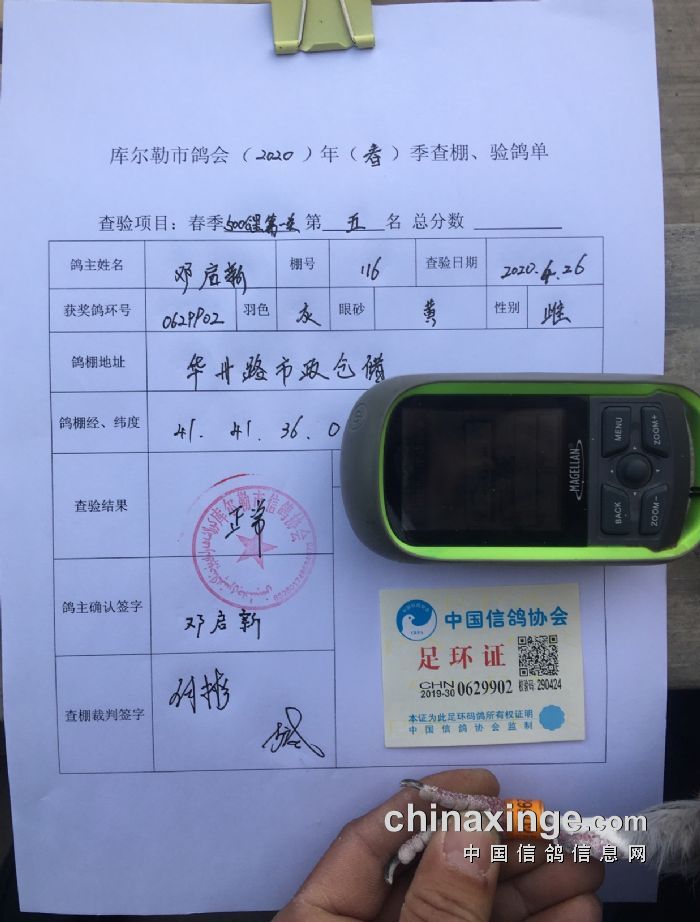 库尔勒市鸽会（2020）年（春）季查棚、验鸽单
查验项目：春季500公里第一关 第 五 名 总分数
鸽主姓名 邓启新 棚号 116 查验日期 2020.4.26
获奖鸽环号 0629902 羽色 灰 眼砂 黄 性别 雌
鸽棚地址 华升路市政仓储
鸽棚经、纬度 41. 41. 36. 0
查验结果 正常
库尔勒市信鸽协会
鸽主确认签字 邓启新
查棚裁判签字
MAGELLAN
MENU
ZOOM+
BACK
ZOOM-
中国信鸽协会
足环证
CHN
2019-30 0629902 校验号: 290424
本证为此足环码鸽所有权证明
中国信鸽协会监制
chinaxinge.com
中国信鸽信息网